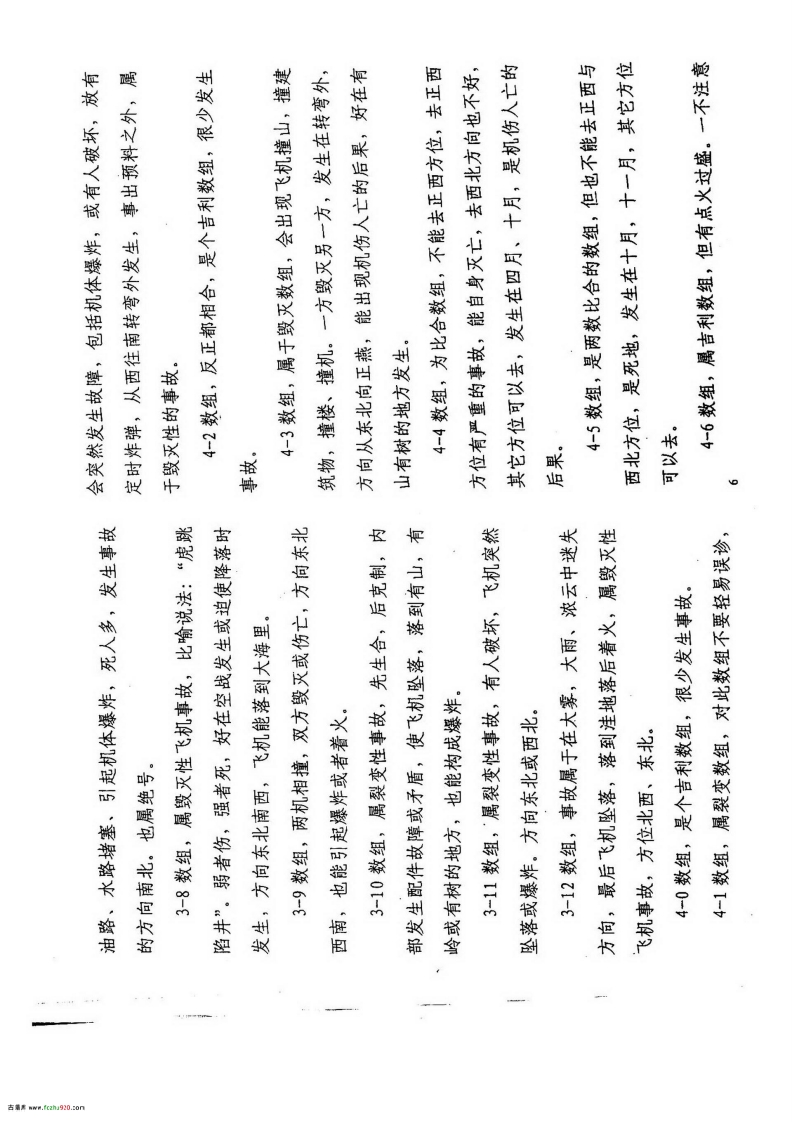 油路、水路堵塞、引起机体爆炸，死人多，发生事故
的方向南北。也属绝号。
3-8 数组，属毁灭性飞机事故，比喻说法：“虎跳
陷井”。弱者伤，强者死，好在空战发生或迫使降落时
发生，方向东北南西，飞机能落到大海里。
3-9 数组，两机相撞，双方毁灭或伤亡，方向东北
西南，也能引起爆炸或者着火。
3-10 数组，属裂变性事故，先生合，后克制，内
部发生配件故障或矛盾，使飞机坠落，落到有山，有
岭或有树的地方，也能构成爆炸。
3-11 数组，属裂变性事故，有人破坏，飞机突然
坠落或爆炸。方向东北或西北。
3-12 数组，事故属于在大雾，大雨、浓云中迷失
方向，最后飞机坠落，落到洼地落后着火，属毁灭性
飞机事故，方位北西、东北。
4-0 数组，是个吉利数组，很少发生事故。
4-1 数组，属裂变数组，对此数组不要轻易误诊，
会突然发生故障，包括机体爆炸，或有人破坏，放有
定时炸弹，从西往南转弯外发生，事出预料之外，属
于毁灭性的事故。
4-2 数组，反正都相合，是个吉利数组，很少发生
事故。
4-3 数组，属于毁灭数组，会出现飞机撞山，撞建
筑物，撞楼、撞机。一方毁灭另一方，发生在转弯外，
方向从东北向正燕，能出现机伤人亡的后果，好在有
山有树的地方发生。
4-4 数组，为比合数组，不能去正西方位，去正西
方位有严重的事故，能自身灭亡，去西北方向也不好，
其它方位可以去，发生在四月、十月，是机伤人亡的
后果。
4-5 数组，是两数比合的数组，但也不能去正西与
西北方位，是死地，发生在十月，十一月，其它方位
可以去。
4-6 数组，属吉利数组，但有点火过盛。一不注意
6
古籍库 www.fczhu920.com